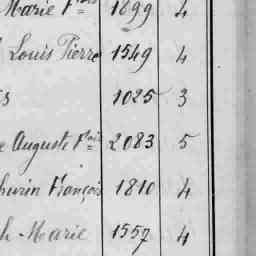 Marie Fçois 1699 4
Louis Pierre 1549 4
s 1025 3
e Auguste Fçois 2083 5
hurin François 1810 4
h Marie 1557 4